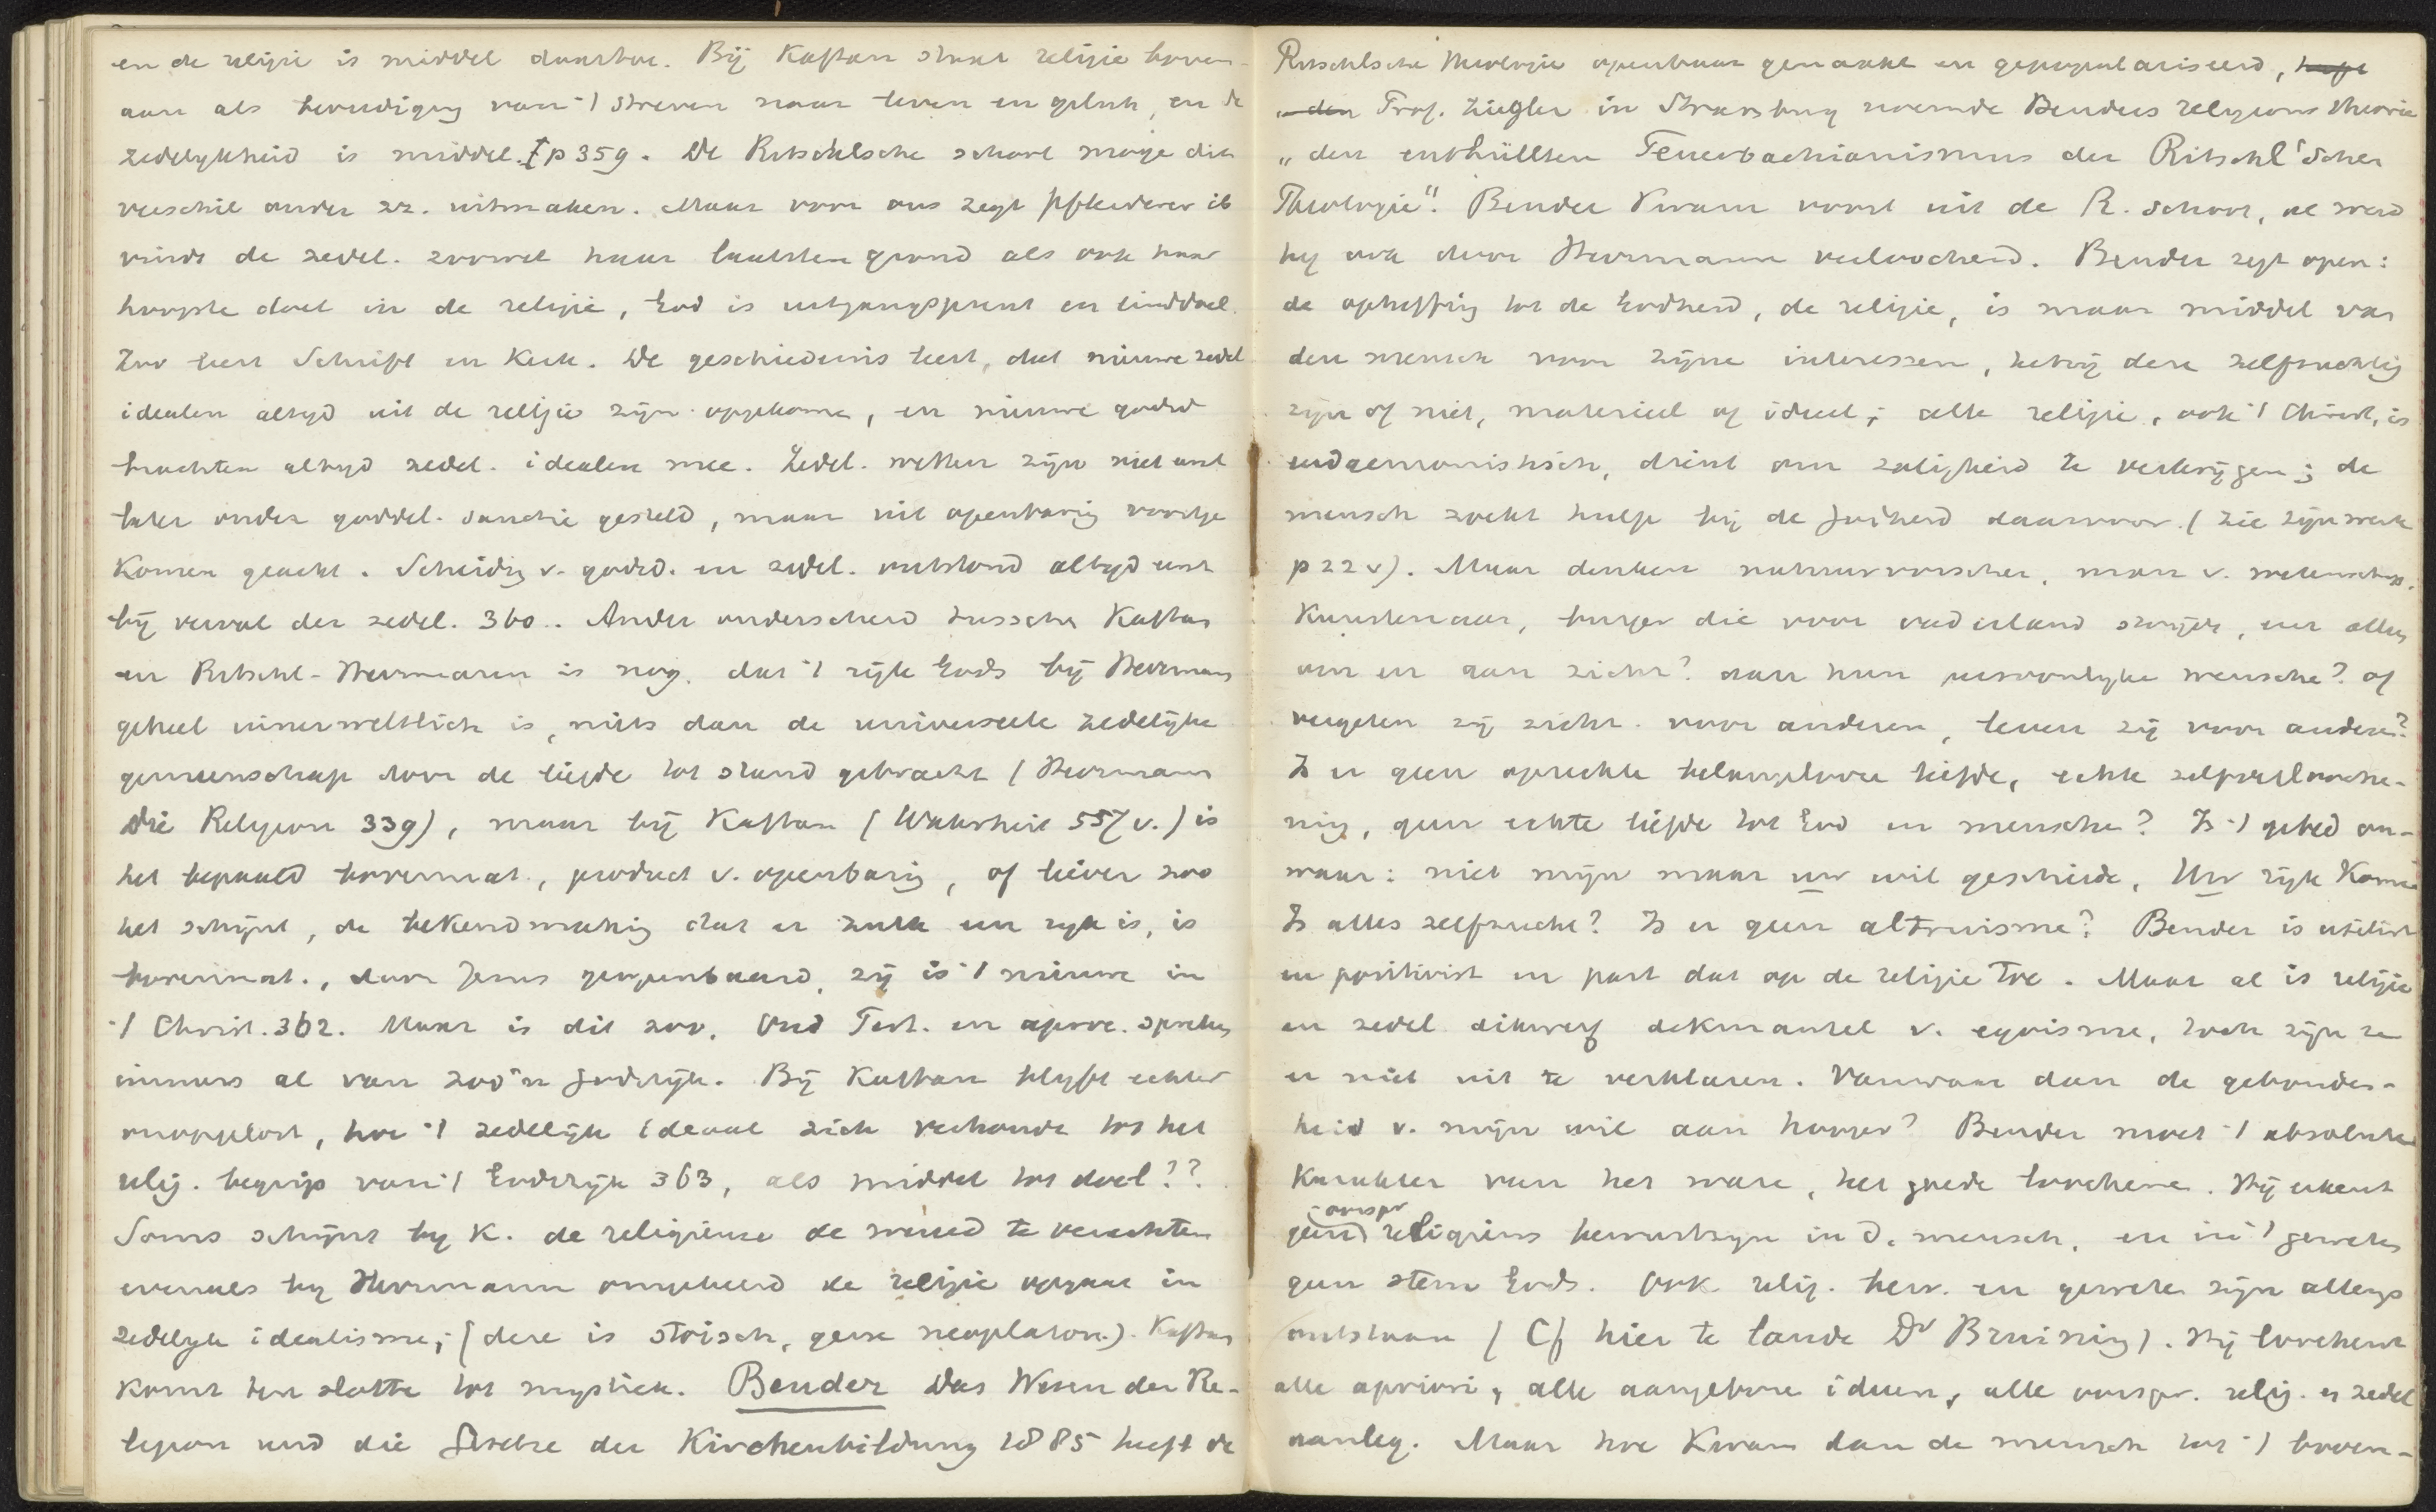 en de religie is middel daartoe. Bij Kaftan staat religie boven-
aan als bevrediging van 't streven naar leven en geluk, en de
zedelykheid is middel. p 359. De Ritschlsche school moge dit
verschil onder zz. uitmaken. Maar voor ons zegt Pfleiderer ib
vindt de zedel. zoowel haar laatsten grond als ook haar
hoogste doel in de religie, God is uitgangspunt en einddoel.
Zoo leert Schrift en Kerk. De geschiedenis leert, dat nieuwe zedel
idealen altyd uit de religie zijn opgekomen, en nieuwe godsd
brachten altyd zedel. idealen mee. Zedel. wetten zijn niet eerst
later onder goddel. sanctie gesteld, maar uit openbaring voortge
komen geacht. Scheidig v. godsd. en zedel. ontstond altyd eerst
bij verval der zedel. 360.. Ander onderscheid tussche Kaftan
en Ritschl-Herrmann is nog, dat 't rijk Gods bij Herrmann
geheel innerweltlich is, niets dan de universeele zedelijke
gemeenschap door de liefde tot stand gebracht (Herrmann
Die Religion 339), maar bij Kaftan (Wahrheit 557 v.) is
het bepaald bovennat., product v. openbarig, of liever zoo
het schijnt, de bekendmakig dat er zulk een ryk is, is
bovennat., door Jezus geopenbaard, zij is 't nieuwe in
't Christ. 362. Maar is dit zoo. Oud Test. en apocr. spreken
immers al van zoo'n godsrijk. Bij Kaftan blyft echter
onopgelost, hoe 't zedelijk ideaal zich verhoude tot het
relig. begrip van 't Godsrijk 363, als middel tot doel??.
Soms schijnt by K. de religieuse de wereld te verachten
evenals by Herrmann omgekeerd de religie opgaat in
zedelyk idealisme; (deze is stoisch, gene neoplaton.). Kaftan
komt ten slotte tot mystiek. Bender Das Wesen der Re-
ligion und die Gesetze der Kirchenbildung 1885 heeft de
Ritschlsche theologie openbaar gemaakt en gepopulariseerd, heeft
den Prof. Ziegler in Strassburg noemde Benders religions theorie
„den enthüllten Feuerbachianismus der Ritschl'schen
Theologie". Bender kwam voort uit de R. school, al werd
hy ook door Herrmann verloochend. Bender zegt open:
de opheffing tot de Godheid, de religie, is maar middel van
den mensch voor zijne interessen, hetzij deze zelfzuchtig
zijn of niet, materieel of ideeel; alle religie, ook 't Christ, is
eudaemonistisch, dient om zaligheid te verkrijgen; de
mensch zoekt hulp bij de Godheid daarvoor. (Zie zijn werk
p 22 v). Maar denken natuurvorscher, man v. wetenschap,
kunstenaar, burger die voor vaderland strijdt, en alles
om en aan zich? aan hun persoonlyke wensche? of
vergeten zij zich voor anderen, leven zij voor anderen?
Is er geen oprechte belangelooze liefde, echte zelfverlooche-
nig, geen echte liefde tot God en mensche? Is 't gebed on-
waar: niet mijn maar uw wil geschiede, Uw rijk kome
Is alles zelfzucht? Is er geen altruisme? Bender is utilist
en positivist en past dat op de religie toe. Maar al is religie
en zedel dikwerf dekmantel v. egoisme, toch zijn ze
er niet uit te verklaren. Vanwaar dan de gebonden-
heid v. mijn wil aan hooger? Bender moet 't absolute
karakter van het ware, het goede loochenen. Hij erkent
geen oorspr religieus bewustzijn in d. mensch, en in 't geweten
geen stem Gods. Ook relig. bew. en geweten zijn allengs
ontstaan (Cf hier te lande Dr Bruining). Hij loochent
alle apriori, alle aangeboren ideeen, alle oorspr. relig. en zedel
aanleg. Maar hoe kwam dan de mensch tot 't boven-